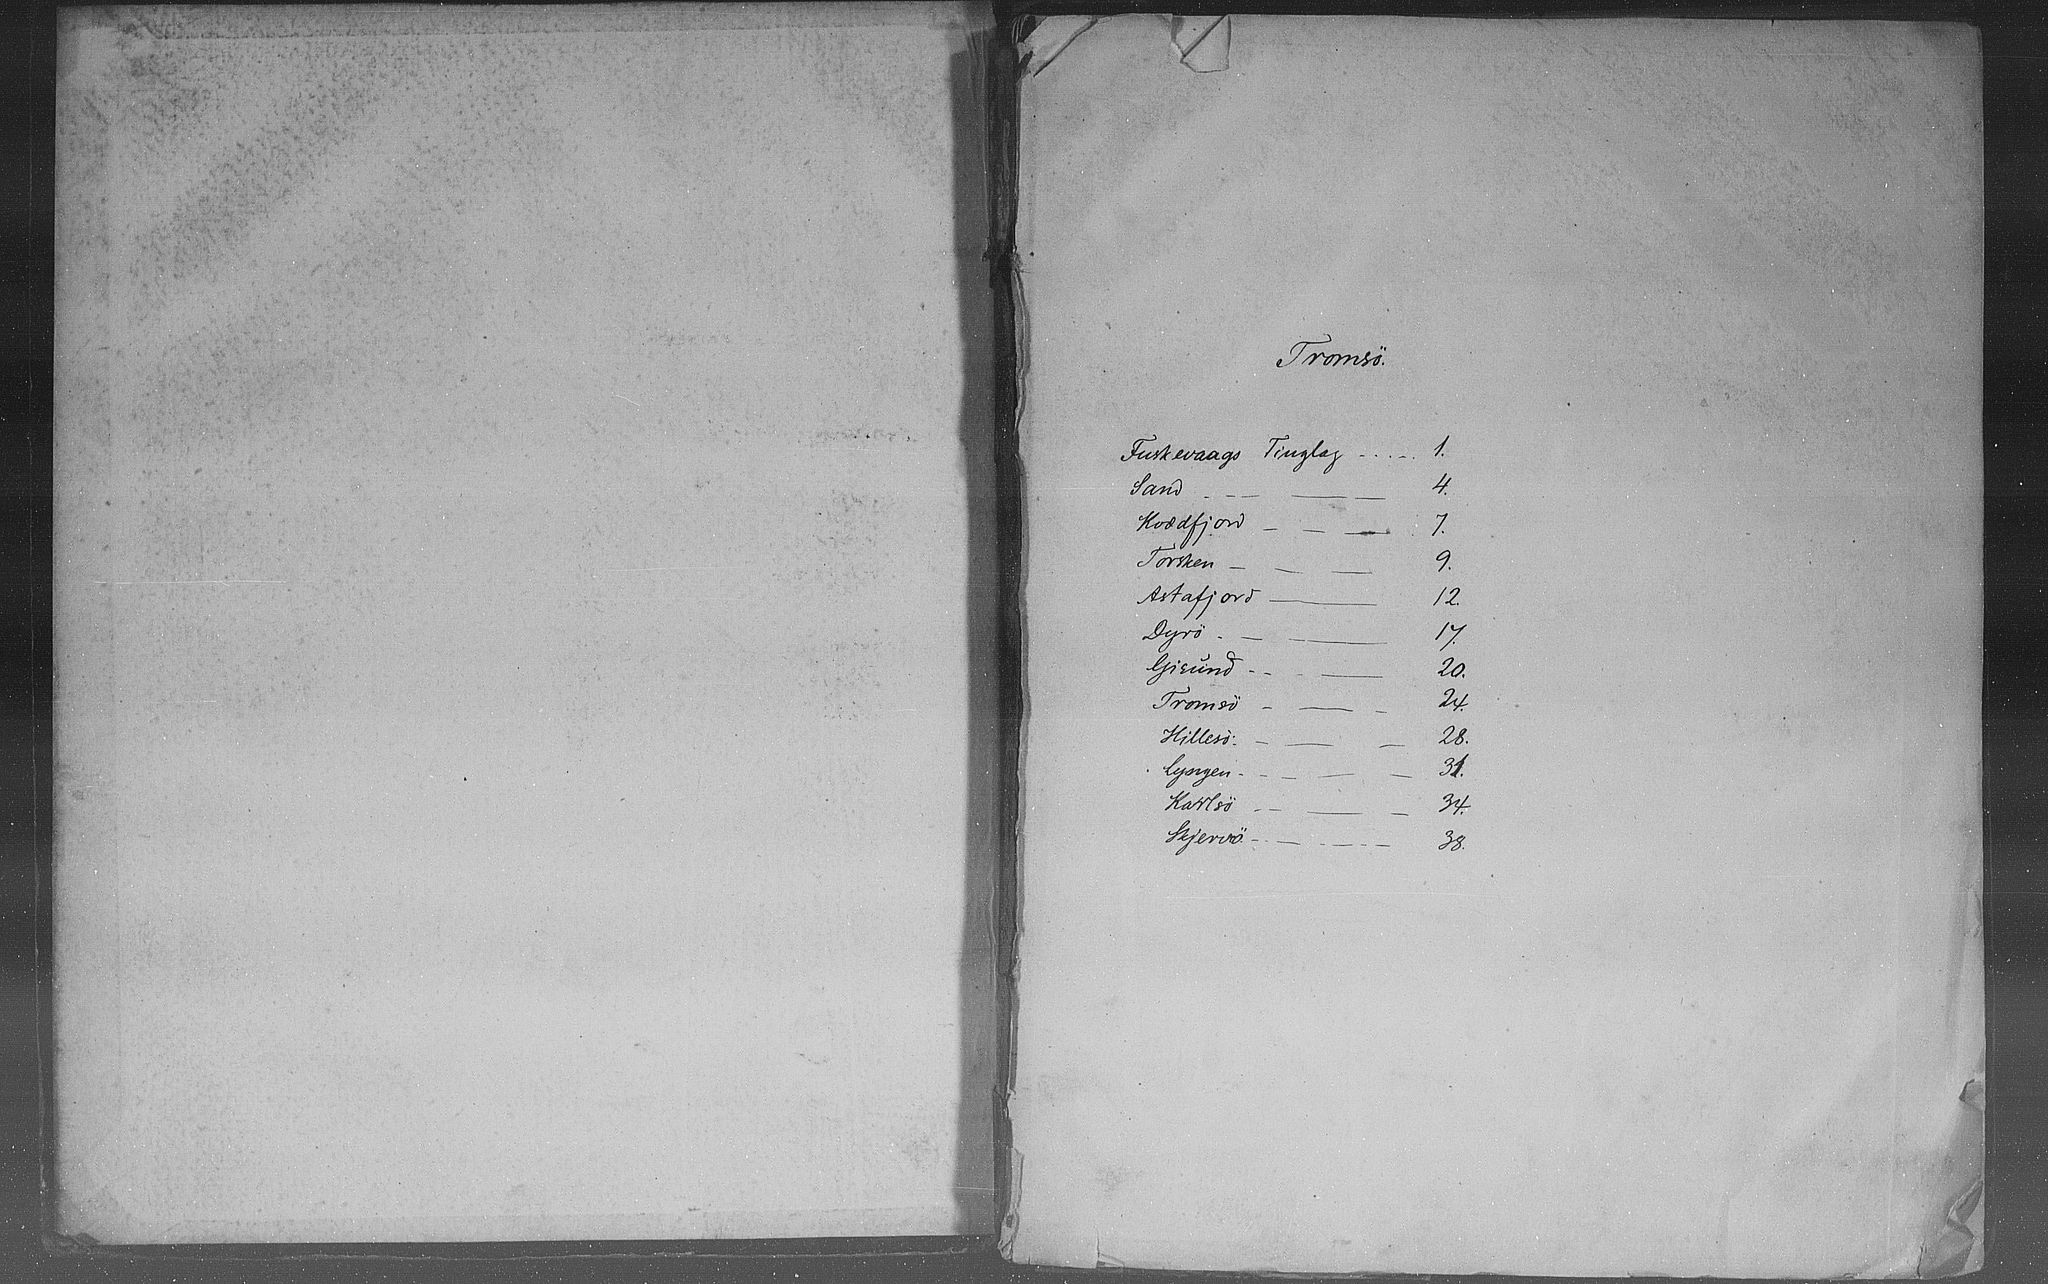 Tromsö.
Fuskevaags Tinglag ..... 1.
Sand 4.
Kvædfjord 7.
Torsken 9.
Astafjord 12.
Dyrö 17.
Gisund 20.
Tromsö 24.
Hillesö. 28.
Lyngen 31.
Karlsö 34.
Skjervö 38.